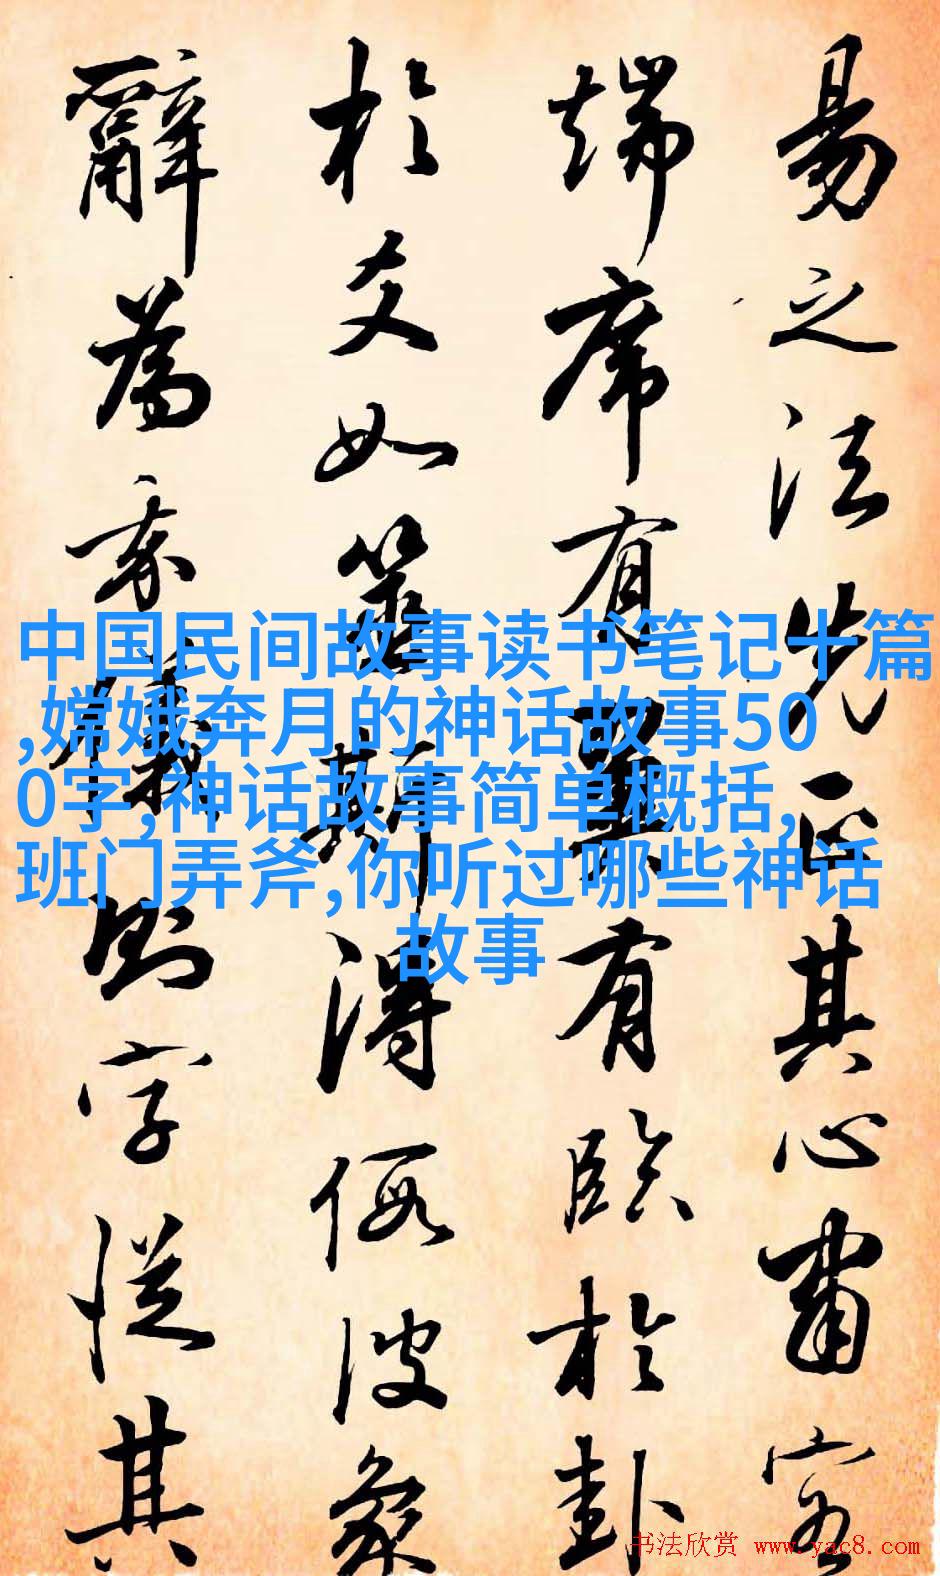 易之法先正其心肅容
端席有翼有臨於卦
於爻如筮斯得假彼象
辭為我儀則字從其
中国民间故事读书笔记十篇
,嫦娥奔月的神话故事50
0字,神话故事简单概括,
班门弄斧,你听过哪些神话
故事
书法欣赏 www.yac8.com